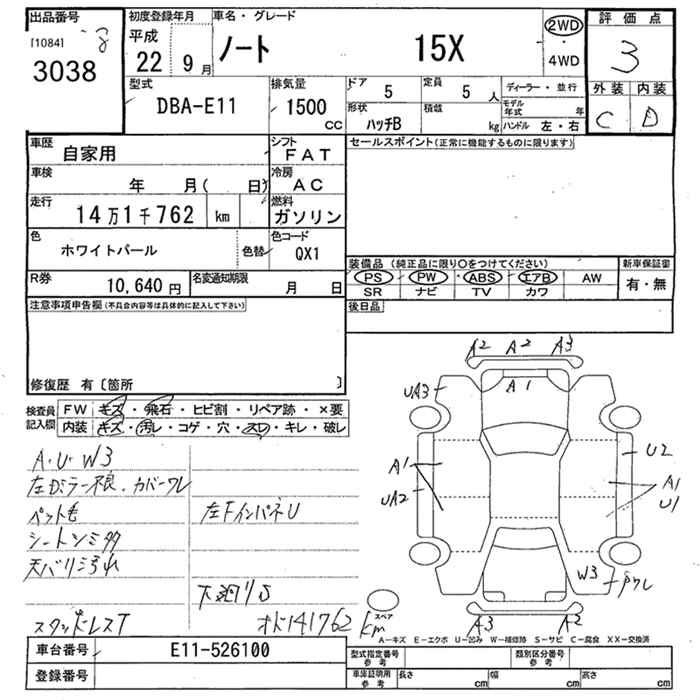 出品番号 初度登録年月 車名・グレード 評価点
[1084] 8 平成 2WD
3038 22 9月 ノート 15X 4WD 3
型式 排気量 ドア 5 定員 5人 ディーラー・並行 外装 内装
DBA-E11 1500 CC 形状 ハッチB 積載 kg モデル年式 年 C D
ハンドル 左・右
車歴 自家用 シフト FAT セールスポイント(正常に機能するものに限ります)
車検 年 月( 日) 冷房 AC
走行 14万1千762 km 燃料 ガソリン
色 ホワイトパール 色替 色コード QX1
装備品(純正品に限り○をつけてください) 新車保証書
R券 10,640円 名変通知期限 月 日 PS PW ABS エアB AW 有・無
SR ナビ TV カワ
注意事項申告欄(不具合内容等は具体的に記入して下さい) 後日品
修復歴 有〔箇所 〕
A2 A2 A3
A1
UA3
検査員 FW キズ・飛石・ヒビ割・リペア跡・×要
記入欄 内装 キズ・汚レ・コゲ・穴・スレ・キレ・破レ
U2
A・U・W3 A1 A1
左Dミラー不良・カバーワレ UA2 U1
ペット毛 左FインパネU
シートシミ多
天バリ汚れ W3
下廻りS
スタッドレスT オド141762km スペア A3 A2
A−キズ E−エクボ U−凹み W−補修跡 S−サビ C−腐食 XX−交換済
車台番号 E11-526100 型式指定番号 参考 類別区分番号 参考
登録番号 車庫証明用 参考 長さ cm 幅 cm 高さ cm